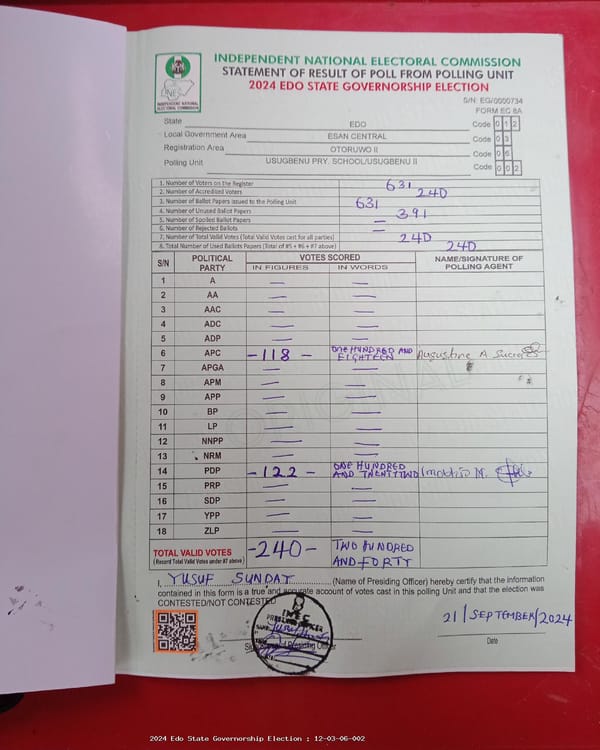 INDEPENDENT NATIONAL ELECTORAL COMMISSION
STATEMENT OF RESULT OF POLL FROM POLLING UNIT
2024 EDO STATE GOVERNORSHIP ELECTION
INDEPENDENT NATIONAL ELECTORAL COMMISSION
S/N: EG/0000734
FORM EC 8A
State EDO Code 0 1 2
Local Government Area ESAN CENTRAL Code 0 3
Registration Area OTORUWO II Code 0 6
Polling Unit USUGBENU PRY. SCHOOL/USUGBENU II Code 0 0 2
1. Number of Voters on the Register 631
2. Number of Accredited Voters 240
3. Number of Ballot Papers Issued to the Polling Unit 631
4. Number of Unused Ballot Papers 391
5. Number of Spoiled Ballot Papers —
6. Number of Rejected Ballots —
7. Number of Total Valid Votes (Total Valid Votes cast for all parties) 240
8. Total Number of Used Ballots Papers (Total of #5 + #6 + #7 above) 240
S/N POLITICAL PARTY VOTES SCORED NAME/SIGNATURE OF POLLING AGENT
IN FIGURES IN WORDS
1 A — —
2 AA — —
3 AAC — —
4 ADC — —
5 ADP — —
6 APC -118- ONE HUNDRED AND EIGHTEEN Augustine A
7 APGA — —
8 APM — —
9 APP — —
10 BP — —
11 LP — —
12 NNPP — —
13 NRM — —
14 PDP -122- ONE HUNDRED AND TWENTY TWO M.
15 PRP — —
16 SDP — —
17 YPP — —
18 ZLP — —
TOTAL VALID VOTES -240- TWO HUNDRED AND FORTY
(Record Total Valid Votes under #7 above)
I, YUSUF SUNDAY (Name of Presiding Officer) hereby certify that the information
contained in this form is a true and accurate account of votes cast in this polling Unit and that the election was
CONTESTED/NOT CONTESTED
INEC
PRESIDING OFFICER
21/SEPTEMBER/2024
Presiding Officer
Date
2024 Edo State Governorship Election : 12-03-06-002